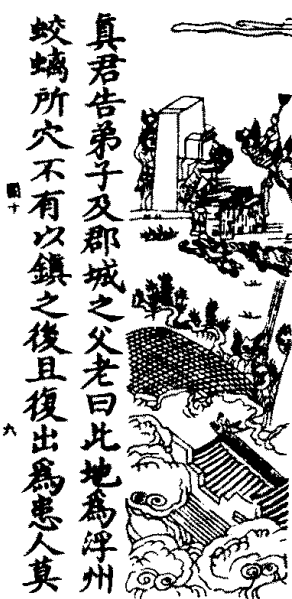 真君告弟子及郡城之父老曰此地爲浮州
蛟螭所穴不有以鎮之後且復出爲患人莫
圖十
六